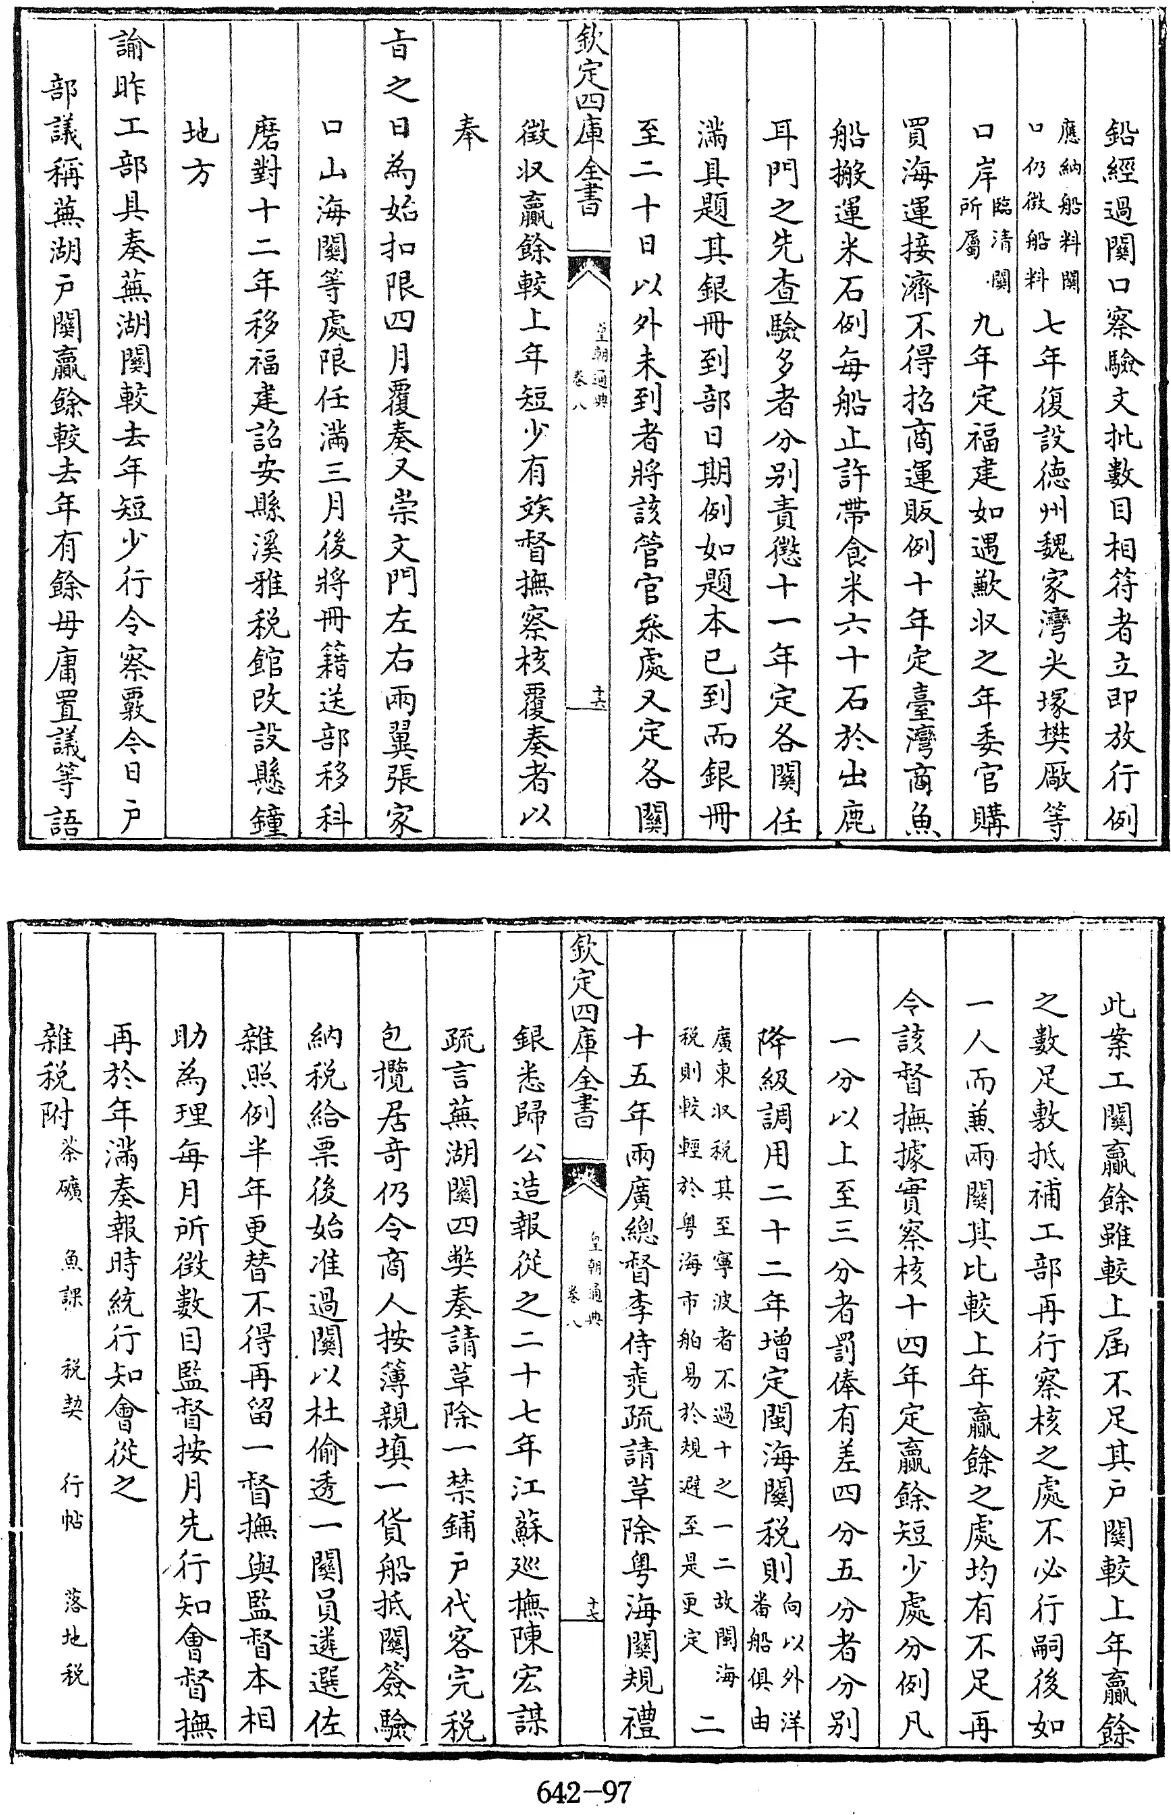 鉛經過關口察驗文批數目相符者立即放行例
應納船料關
口仍徵船料
七年復設徳州魏家灣尖塚樊厰等
口岸
臨清關
所屬
九年定福建如遇歉收之年委官購
買海運接濟不得招商運販例十年定臺灣商魚
船搬運米石例每船止許帶食米六十石於出鹿
耳門之先查驗多者分别責懲十一年定各關任
滿具題其銀冊到部日期例如題本已到而銀冊
至二十日以外未到者將該管官叅處又定各關
欽定四庫全書
皇朝通典
卷八
十六
徵收贏餘較上年短少有竢督撫察核覆奏者以
奉
旨之日為始扣限四月覆奏又崇文門左右兩翼張家
口山海關等處限任滿三月後將冊籍送部移科
磨對十二年移福建詔安縣溪雅税館改設懸鐘
地方
諭昨工部具奏蕪湖關較去年短少行令察覈今日户
部議稱蕪湖户關贏餘較去年有餘毋庸置議等語
此案工關贏餘雖較上屆不足其户關較上年贏餘
之數足敷抵補工部再行察核之處不必行嗣後如
一人而兼兩關其比較上年贏餘之處均有不足再
令該督撫據實察核十四年定贏餘短少處分例凡
一分以上至三分者罰俸有差四分五分者分别
降級調用二十二年增定閩海關税則
向以外洋
番船俱由
廣東收税其至寧波者不過十之一二故閩海
税則較輕於粤海市舶易於規避至是更定
二
十五年兩廣總督李侍堯疏請革除粤海關規禮
欽定四庫全書
皇朝通典
卷八
十七
銀悉歸公造報從之二十七年江蘇巡撫陳宏謀
疏言蕪湖關四弊奏請革除一禁鋪户代客完税
包攬居奇仍令商人按簿親填一貨船抵關簽驗
納税給票後始准過關以杜偷透一關員遴選佐
雜照例半年更替不得再留一督撫與監督本相
助為理每月所徵數目監督按月先行知會督撫
再於年滿奏報時統行知會從之
雜税附
茶礦 魚課 税契 行帖 落地税
642-97